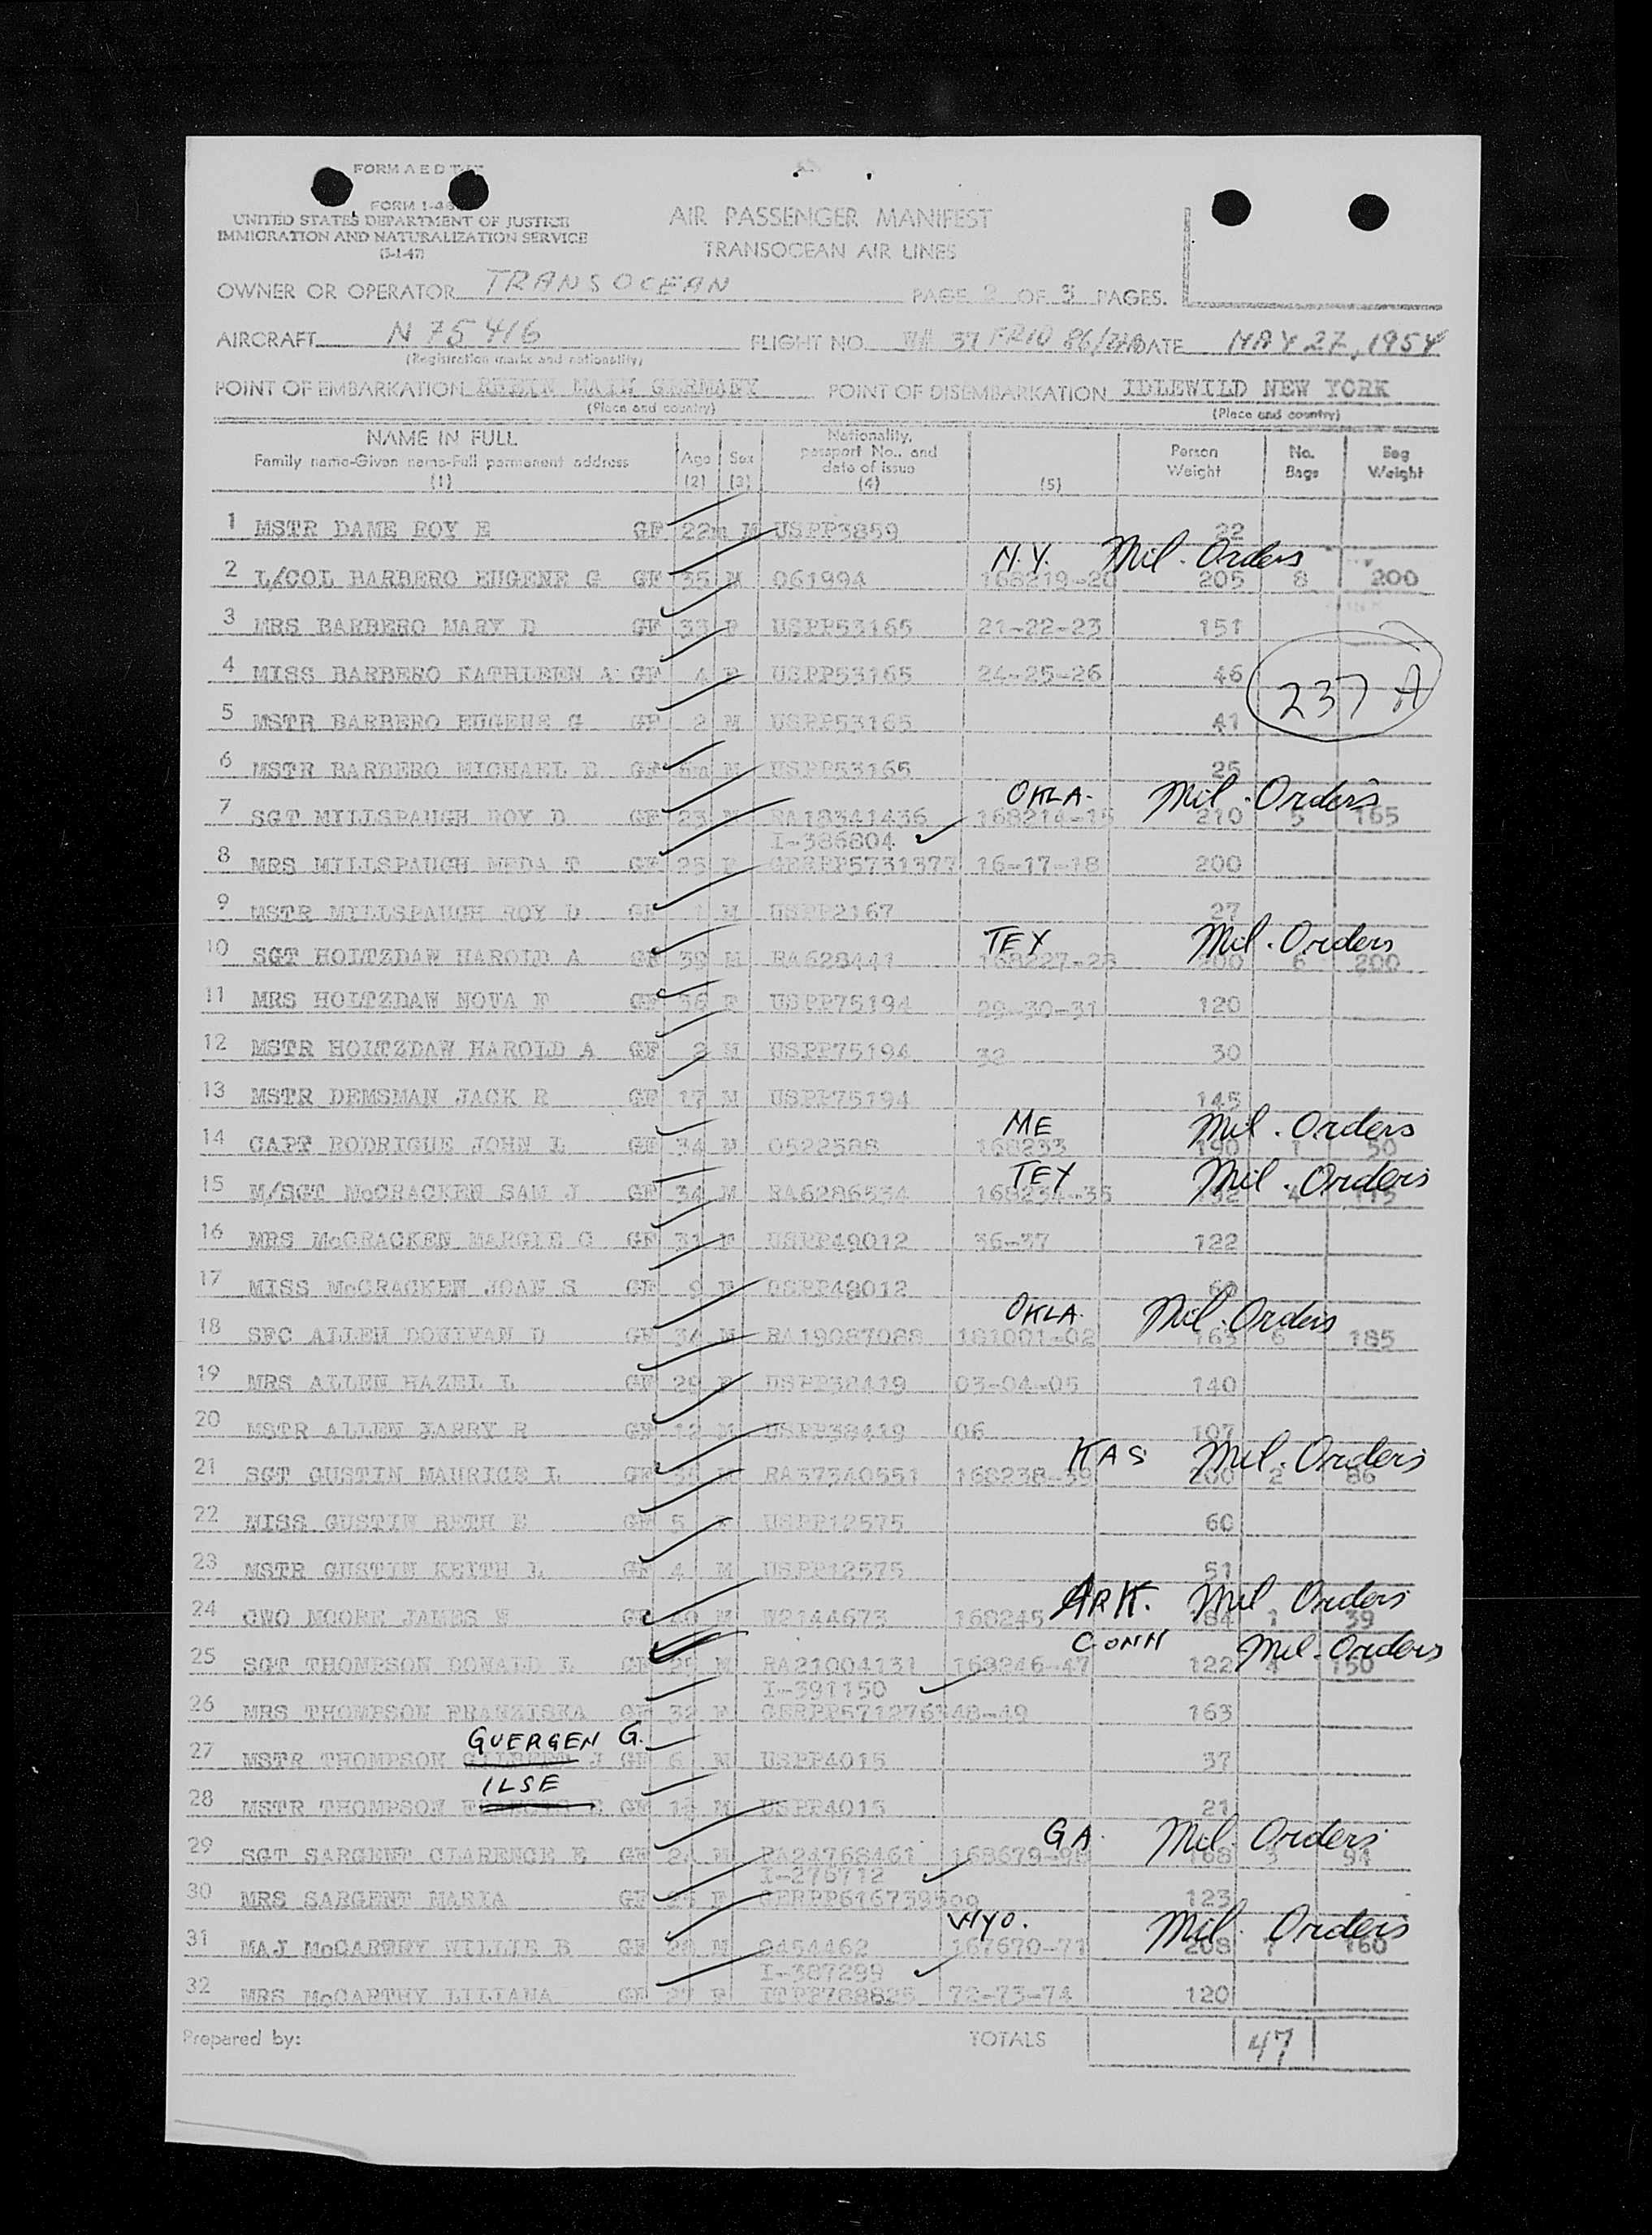 FORM A E D
FORM I-4
UNITED STATES DEPARTMENT OF JUSTICE
IMMIGRATION AND NATURALIZATION SERVICE
(5-1-47)
AIR PASSENGER MANIFEST
TRANSOCEAN AIR LINES
OWNER OR OPERATOR TRANSOCEAN PAGE 2 OF 3 PAGES.
AIRCRAFT N 75416 FLIGHT NO. 37 FRIO DATE MAY 27, 1954
(Registration marks and nationality)
POINT OF EMBARKATION RHEIN MAIN GERMANY POINT OF DISEMBARKATION IDLEWILD NEW YORK
(Place and country) (Place and country)
NAME IN FULL Age Sex Nationality, passport No., and date of issue Person Weight No. Bags Bag Weight
Family name-Given name-Full permanent address
(1) (2) (3) (4) (5)
1 MSTR DAME ROY E GF 22m M USPP3859 22
N.Y. Mil. Orders
2 L/COL BARBERO EUGENE G GF 35 M 061994 168219-20 205 8 200
3 MRS BARBERO MARY D GF 33 F USPP53165 21-22-23 151
4 MISS BARBERO KATHLEEN A GF 4 F USPP53165 24-25-26 46
237 A
5 MSTR BARBERO EUGENE G GF 2 M USPP53165 41
6 MSTR BARBERO MICHAEL GF M USPP53165 25
OKLA. Mil. Orders
7 SGT MILLSPAUGH ROY D GF 23 M RA18341436 168214-15 210 5 165
I-386804
8 MRS MILLSPAUGH MEDA T GF 25 F GERPP5731377 16-17-18 200
9 MSTR MILLSPAUGH ROY D GF M USPP2167 27
TEX Mil. Orders
10 SGT HOLTZDAW HAROLD A GF 39 M RA628441 168227-28 200 6 200
11 MRS HOLTZDAW NOVA F GF 36 F USPP75194 29-30-31 120
12 MSTR HOLTZDAW HAROLD A GF 2 M USPP75194 32 30
13 MSTR DEMSMAN JACK R GF 17 M USPP75194 145
ME Mil. Orders
14 CAPT RODRIGUE JOHN L GF 34 M 0522588 168233 190 1 50
TEX Mil. Orders
15 M/SGT McCRACKEN SAM J GF 34 M RA6286534 168234-35 4 115
16 MRS McCRACKEN MARGIE C GF 31 F USPP49012 36-37 122
17 MISS McCRACKEN JOAN S GF 9 F USPP49012 60
OKLA. Mil. Orders
18 SFC ALLEN DONIVAN D GF 34 M RA19087088 181001-02 163 6 185
19 MRS ALLEN HAZEL L GF 29 F USPP38419 03-04-05 140
20 MSTR ALLEN R GF 12 M USPP38419 06 107
KAS Mil. Orders
21 SGT GUSTIN MAURICE L GF M RA37340551 168238-39 200 2 86
22 MISS GUSTIN BETH E GF 5 USPP12575 60
23 MSTR GUSTIN KEITH L GF 4 M USPP12575 51
ARK. Mil Orders
24 CWO MOORE JAMES W GF 40 M W2144673 168245 184 1 39
CONN Mil. Orders
25 SGT THOMPSON DONALD L GF 25 M RA21004131 168246-47 122 4 150
I-391150
26 MRS THOMPSON FRANZISKA GF 32 F GERPP5712763 48-49 163
GUERGEN G.
27 MSTR THOMPSON J GF 6 M USPP4015 37
ILSE
28 MSTR THOMPSON GF M USPP4015 21
GA. Mil. Orders
29 SGT SARGENT CLARENCE E GF 24 M RA24768461 168 3 94
I-276712
30 MRS SARGENT MARIA GF F 123
WYO. Mil. Orders
31 MAJ WILLIE B GF M 0454462 167670-71 208 7 160
I-387299
32 MRS McCARTHY LILIANA GF 27 F ITPP788825 72-73-74 120
Prepared by: TOTALS 47